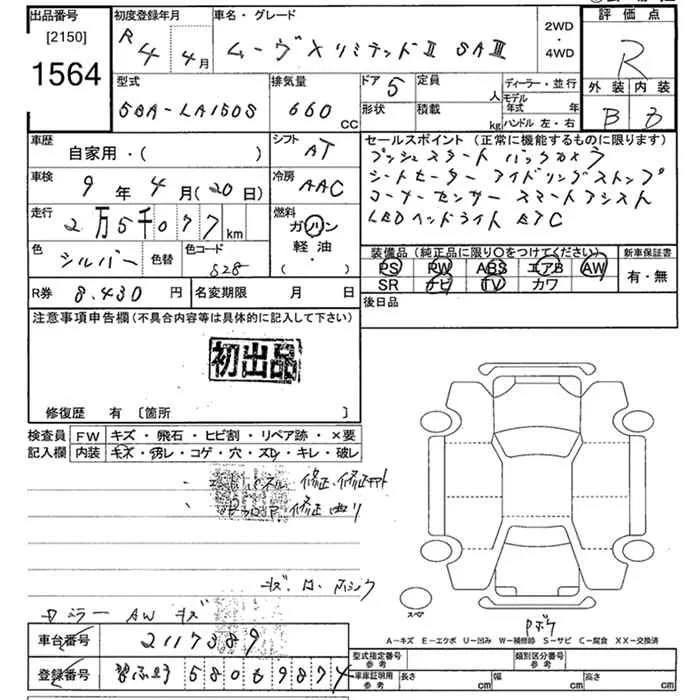 出品番号
[2150]
1564
初度登録年月
R 4年 4月
車名・グレード
ムーヴ X リミテッドⅡ SAⅢ
2WD
・
4WD
評価点
R
外装 内装
B B
型式
5BA-LA150S
排気量
660 cc
ドア 5
形状
定員 人
積載 kg
ディーラー・並行
モデル年式 年
ハンドル 左・右
車歴
自家用・( )
シフト AT
車検
9年 4月(20日)
冷房 AAC
走行
2万5千077km
燃料
ガソリン
軽油・
( )
色 シルバー 色替
色コード S28
R券 8.430円
名変期限 月 日
セールスポイント(正常に機能するものに限ります)
プッシュスタート バックカメラ
シートヒーター アイドリングストップ
コーナーセンサー スマートアシスト
LEDヘッドライト ETC
装備品(純正品に限り○をつけてください)
PS PW ABS エアB AW
SR ナビ TV カワ
新車保証書
有・無
後日品
注意事項申告欄(不具合内容等は具体的に記入して下さい)
初出品
修復歴 有 〔箇所 〕
検査員記入欄
FW キズ・飛石・ヒビ割・リペア跡・×要
内装 キズ・汚レ・コゲ・穴・スレ・キレ・破レ
修正・修正
修正 曲り
ドアミラー AW キズ
車台番号 2117389
登録番号 580 9874
A-キズ E-エクボ U-凹み W-補修跡 S-サビ C-腐食 XX-交換済
スペア
型式指定番号
参考
類別区分番号
参考
車庫証明用
参考
長さ cm 幅 cm 高さ cm